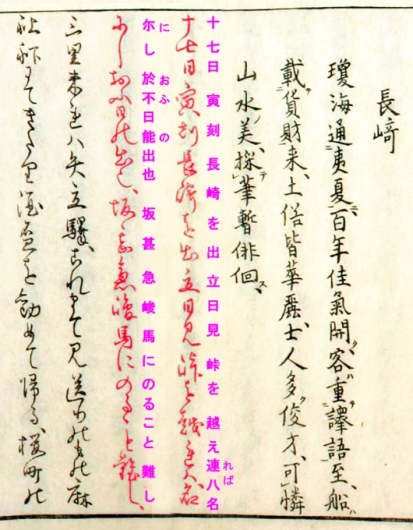 長﨑
瓊海通夷夏、百年佳氣開、客重譯語至、船
載貨財来、土俗皆華麗、士人多俊才、可憐
山水美、採筆暫俳徊、
十七日 寅刻長崎を出立日見峠を越え連八名
れば
十七日寅刻長崎を出立日見峠を越え連八名
に おふ の
尓し於不日能出也 坂甚急峻馬にのること難し
尓し於不日能出也、坂甚急峻馬にのること難し、
三里来れハ矢立驛、これまて見送りの
酒 を勧めて帰る、桜町の